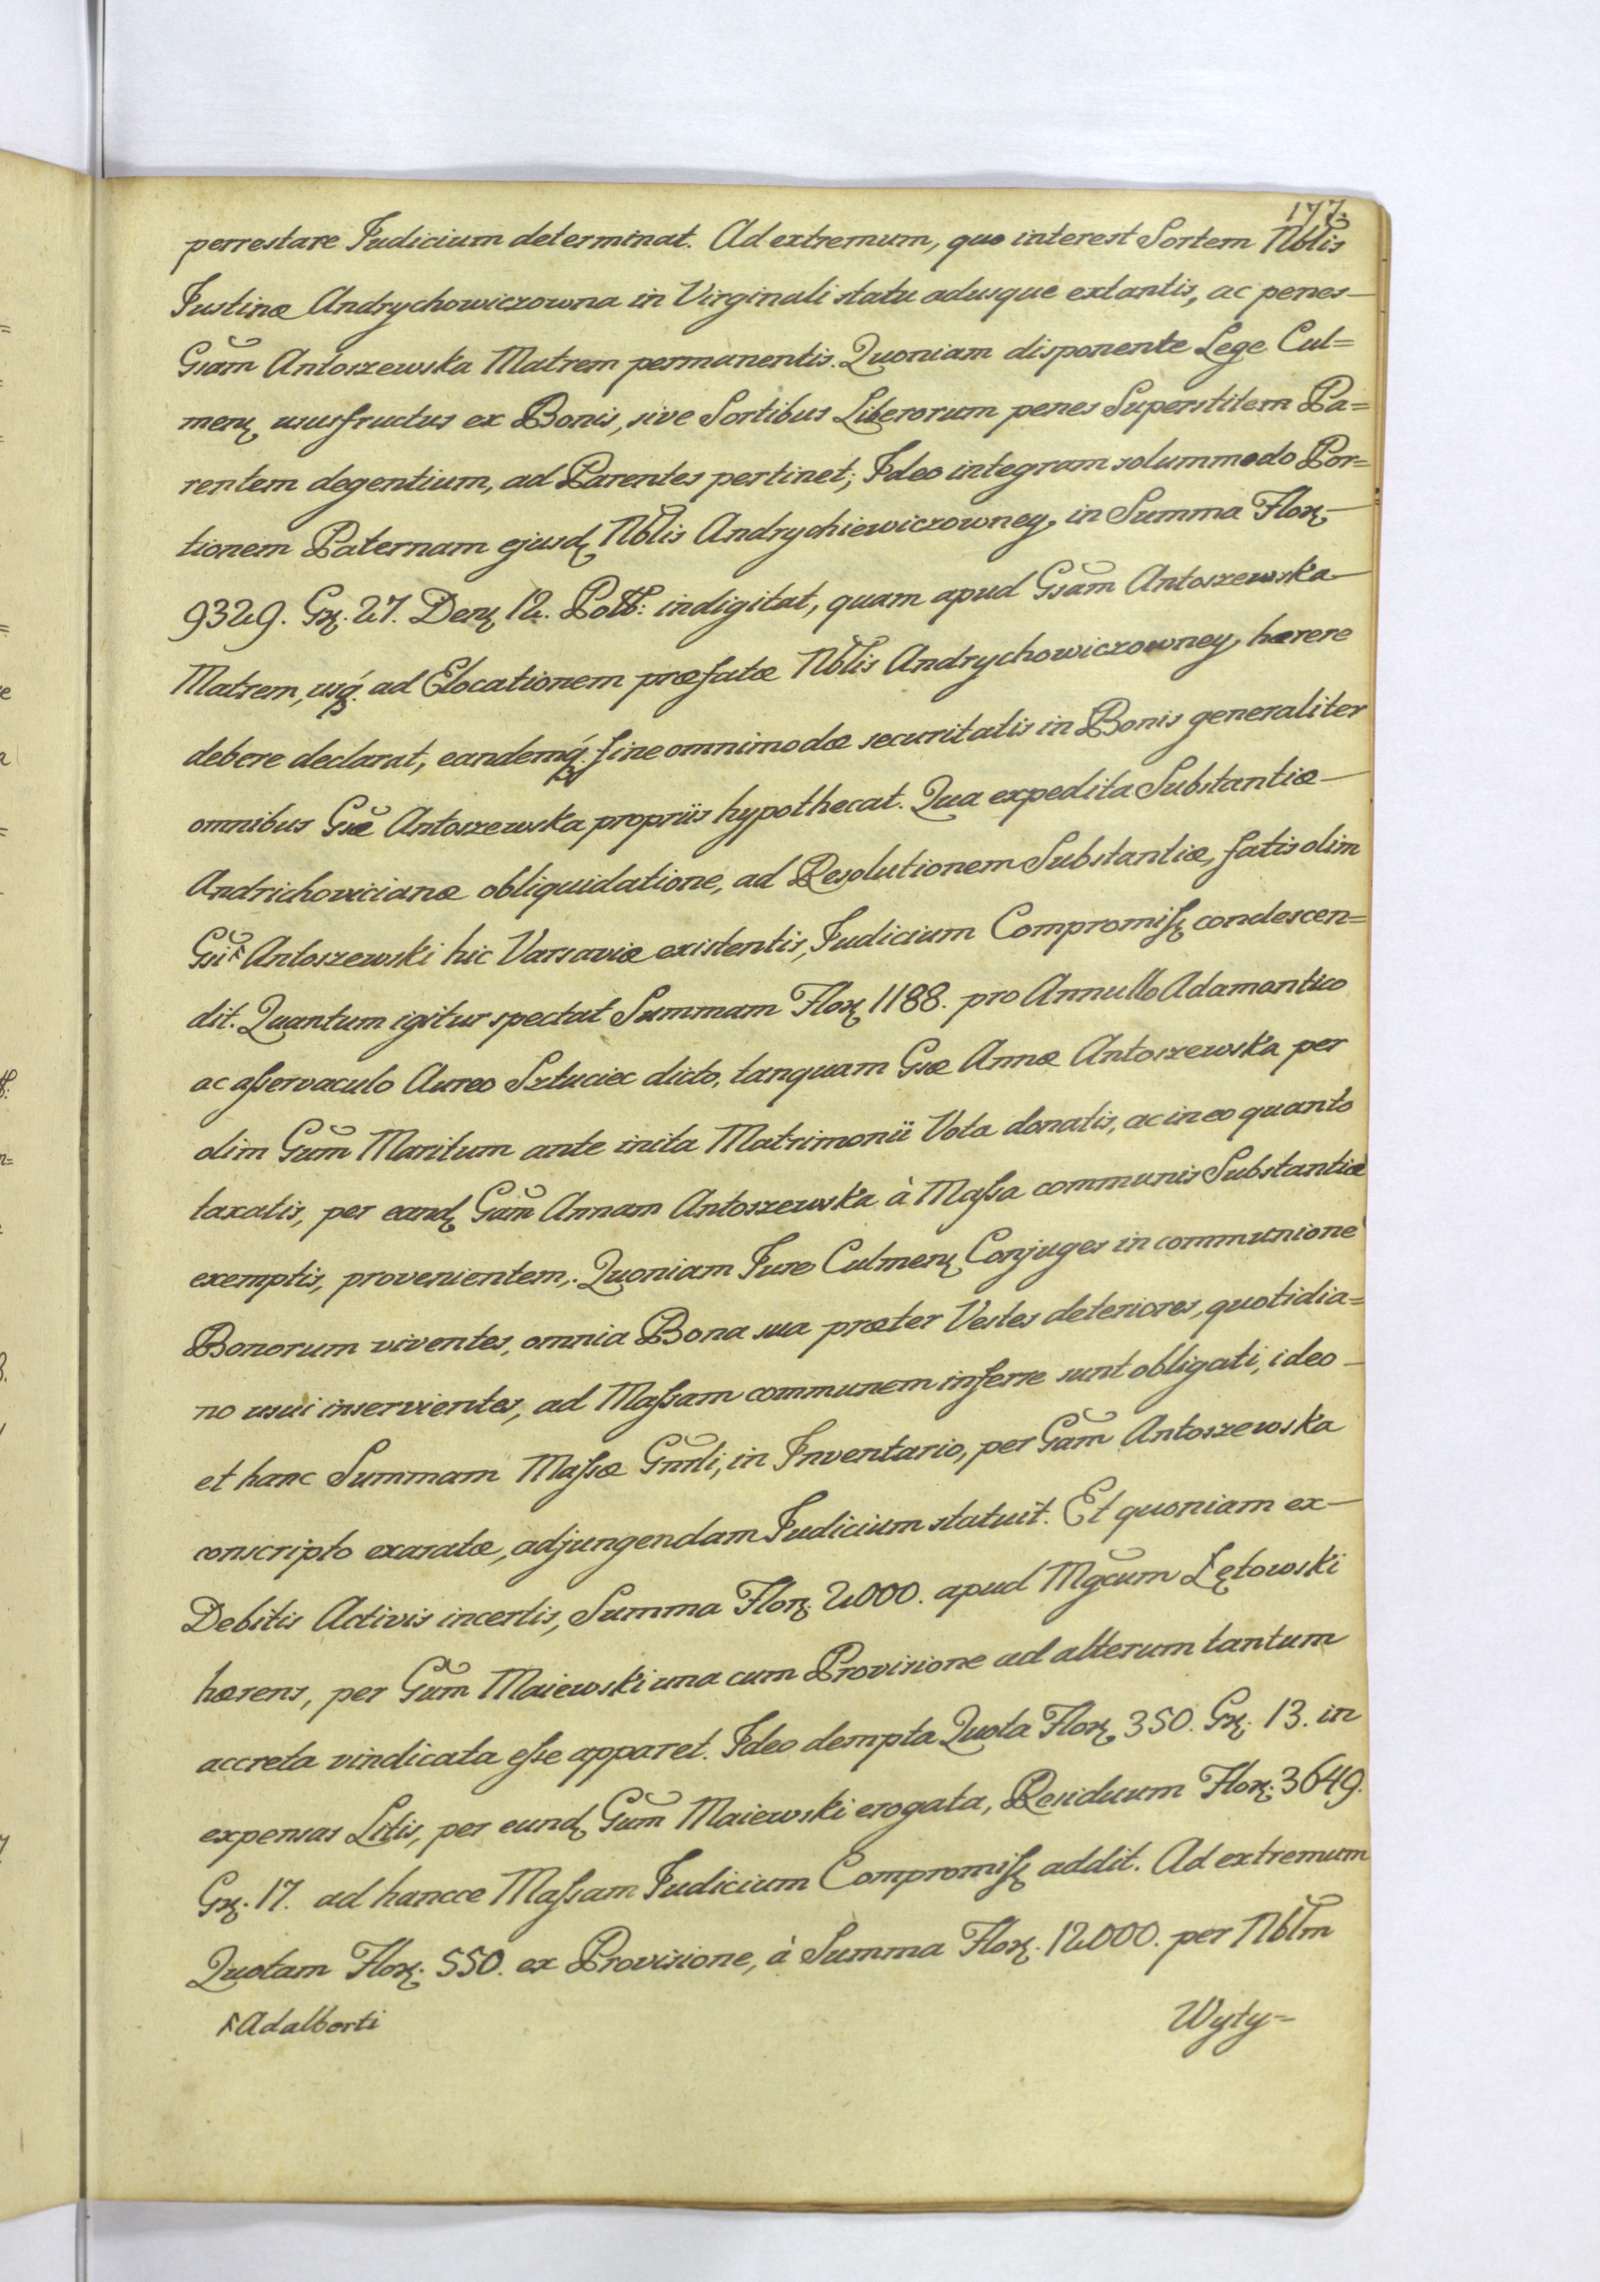 177.
perrestare Judicium determinat. Ad extremum, quo interest Sortem Nblis
Justinæ Andrychowiczowna in Virginali statu adusque extantis, ac penes
Gsam Antoszewska Matrem permanentis. Quoniam disponente Lege Cul=
menꝫ ususfructus ex Bonis, sive Sortibus Liberorum penes Superstitem Pa=
rentem degentium, ad Parentes pertinet; Ideo integram solummodo Por=
tionem Paternam ejusdꝫ Nblis Andrychiewiczowney, in Summa Florꝫ
9329. Grꝫ. 27. Denꝫ 12. Poll: indigitat, quam apud Gsam Antoszewska
Matrem, usq́ꝫ. ad Elocationem præfatæ Nblis Andrychowiczowney, hærere
debere declarat, eandemq́ꝫ. fine omnimodæ securitatis in Bonis generaliter
omnibus Gsæ Antoszewska propriis hypothecat. Qua expedita Substantiæ
Andrichovicianæ obliquidatione, ad Resolutionem Substantiæ, fatis olim
Gsi ^ Antoszewski hic Varsaviæ existentis, Judicium Compromissꝫ condescen=
dit. Quantum igitur spectat Summam Florꝫ 1188. pro Annullo Adamantico
ac asservaculo Aureo Sztuciec dicto, tanquam Gsæ Annæ Antoszewska per
olim Gum Maritum ante inita Matrimonii Vota donatis, ac in eo quanto
taxatis, per eandꝫ Gam Annam Antoszewska à Massa communis Substantiæ
exemptis, provenientem,. Quoniam Jure Culmenꝫ Conjuges in communione
Bonorum viventes, omnia Bona sua præter Vestes deteriores, quotidia=
no usui inservientes, ad Massam communem inferre sunt obligati, ideo
et hanc Summam Massæ Gnrli, in Inventario, per Gam Antoszewska
conscripto exaratæ, adjungendam Judicium statuit. Et quoniam ex
Debitis Activis incertis, Summa Florꝫ. 2000. apud Mgcum Łętowski
hærens, per Gum Maiewski una cum Provisione ad alterum tantum
accreta vindicata esse apparet. Ideo dempta Quota Florꝫ 350. Grꝫ. 13. in
expensas Litis, per eundꝫ Gum Maiewski erogata, Residuum Florꝫ. 3649.
Grꝫ. 17. ad hancce Massam Judicium Compromissꝫ addit. Ad extremum
Quotam Florꝫ. 550. ex Provisione, à Summa Florꝫ. 12000. per Nblm
^ Adalberti
Wyty=